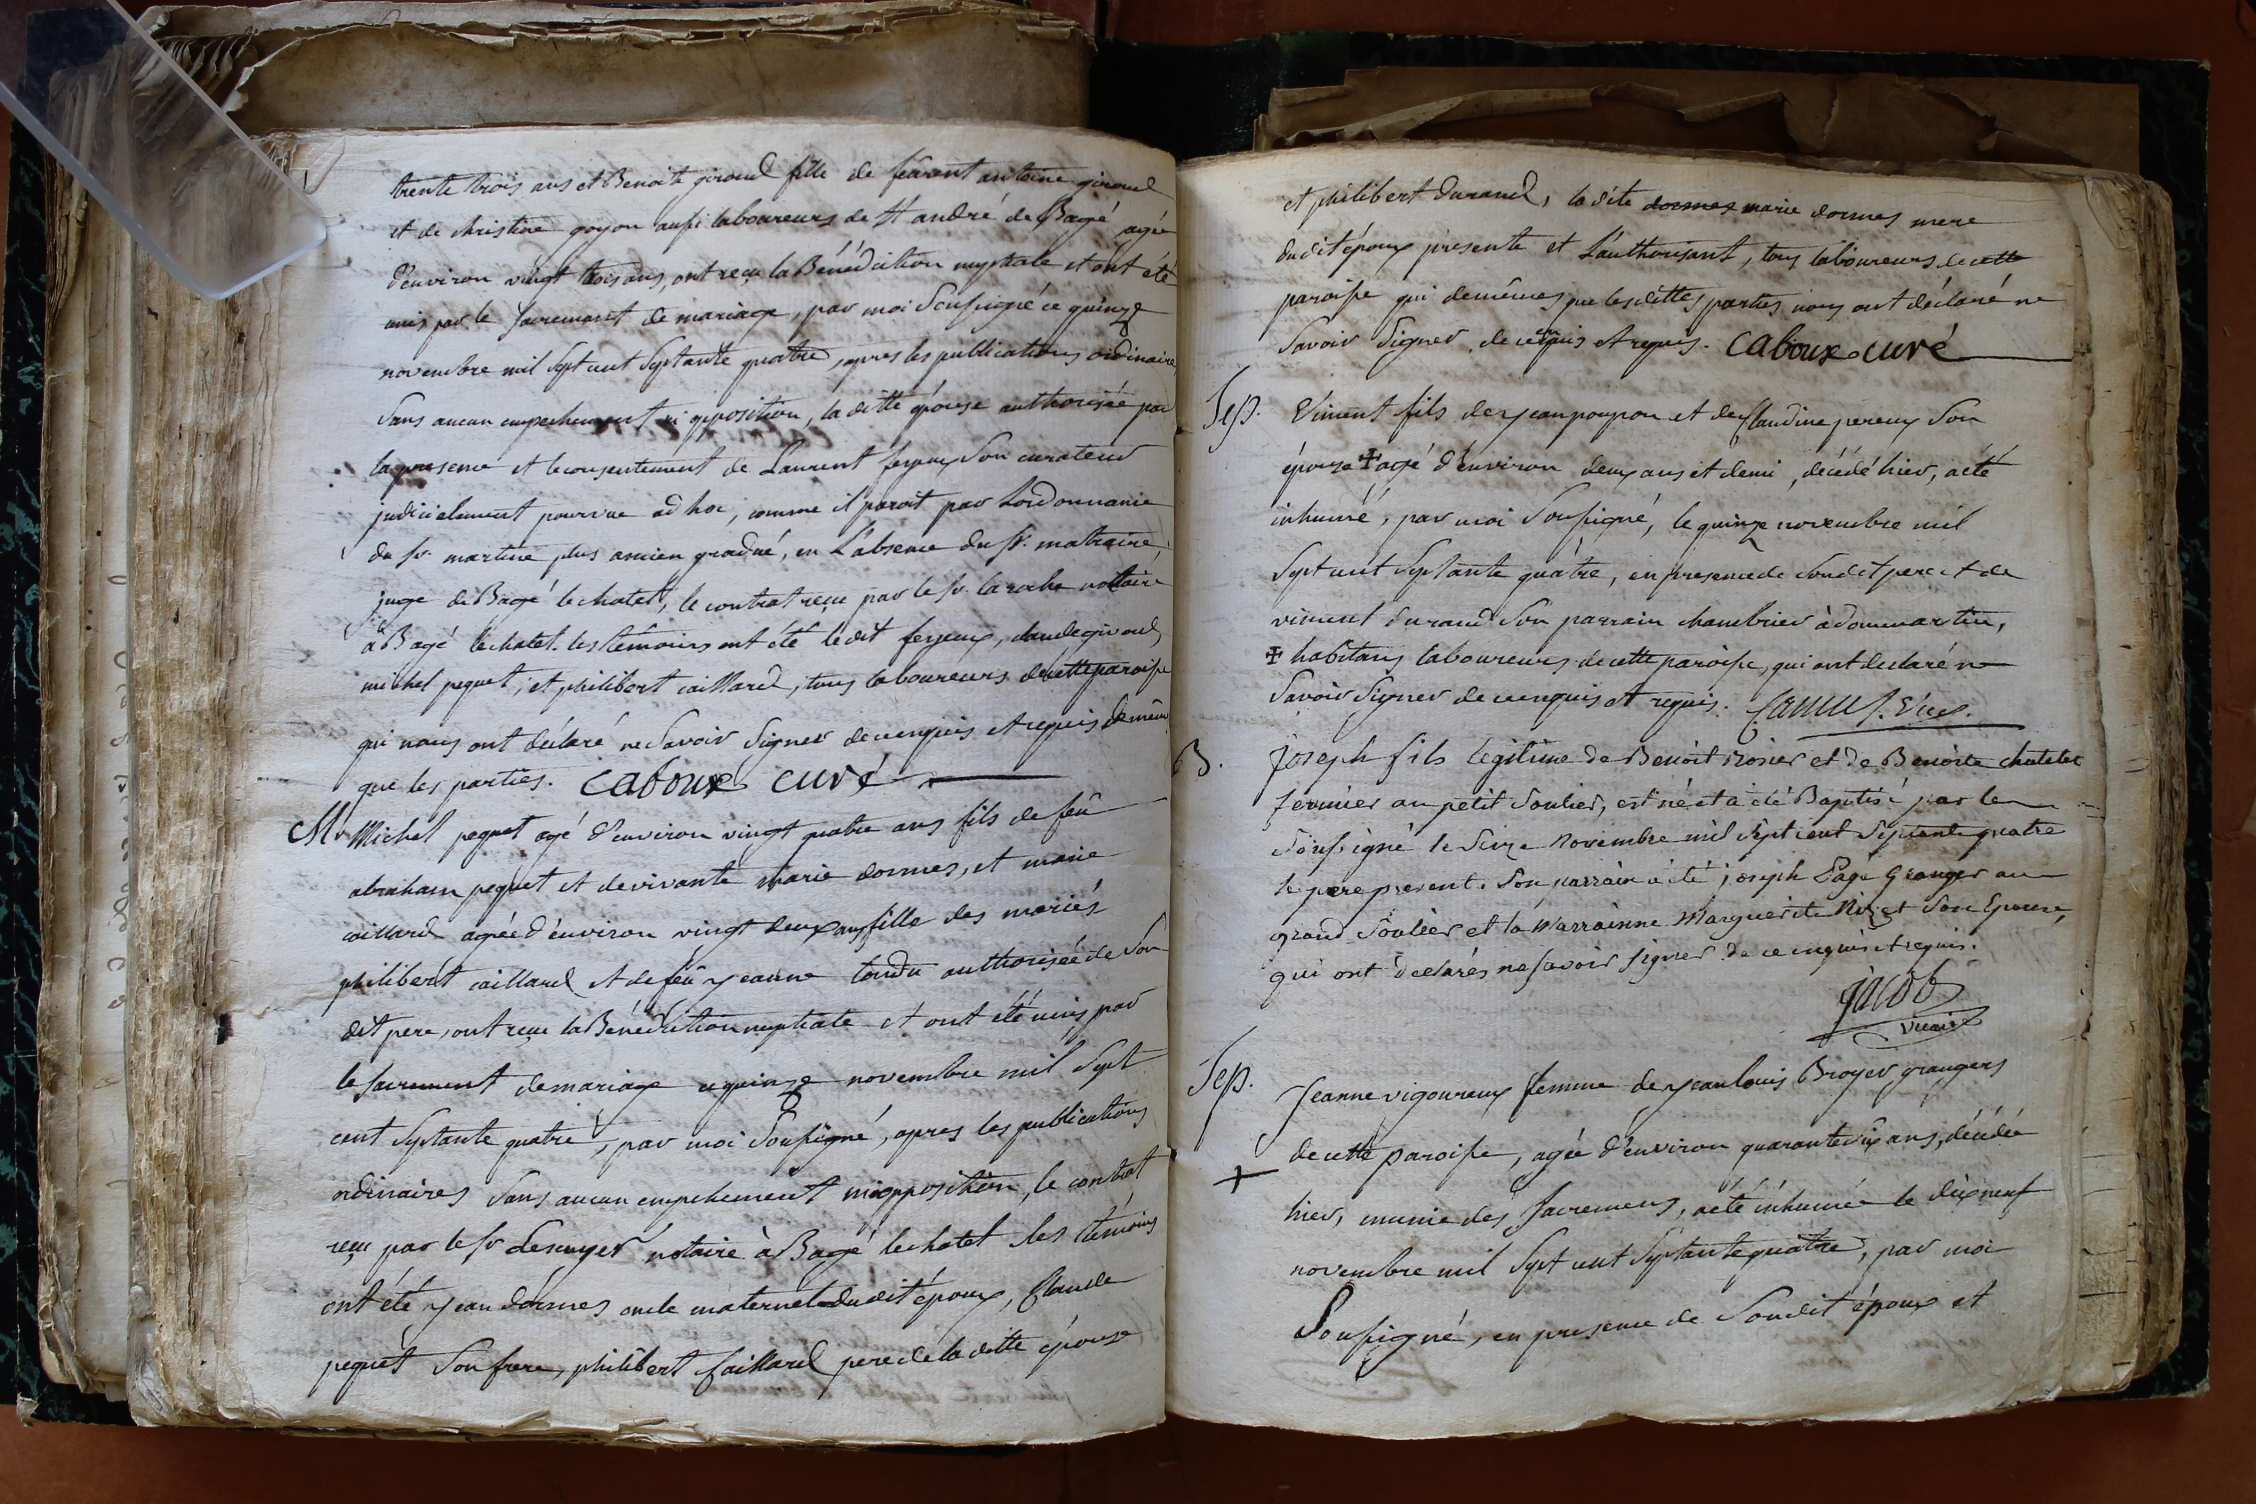 trente trois ans et Benoite giroud fille de feu antoine giroud
et de christine goyon aussi laboureurs de St andré de Bagé agée
d'environ vingt trois ans, ont reçu la Bénédiction nuptiale et ont été
unis par le sacrement de mariage, par moi soussigné ce quinze
novembre mil sept cent septante quatre, apres les publications ordinaires
sans aucun empechement ni opposition, la ditte épouse authorisée par
la presence et le consentement de Laurent ferjeux son curateur
judicielement pourvue ad hoc, comme il paroit par Lordonnance
du sr. martine plus ancien gradué, en L'absence du sr. matraire,
juge de Bagé le chatel, le contrat reçu par le sr. laroche nottaire
à Bagé le chatel. les témoins ont été le dit ferjeux, claude giroud,
michel pequet, et philibert caillard, tous laboureurs de cette paroisse
qui nous ont déclaré ne savoir signer de ce enquis et requis de même
que les parties. Caboux curé
M. Michel pequet agé d'environ vingt quatre ans fils de feû
abraham pequet et de vivante marie dormes, et marie
caillard agée d'environ vingt deux ans fille des mariés
philibert caillard et de feû jeanne tondu authorisée de son
dit pere, ont reçu la Bénédiction nuptiale et ont été unis par
le sacrement de mariage ce quinze novembre mil sept
cent septante quatre, par moi soussigné, apres les publications
ordinaires sans aucun empechement ni opposition, le contrat
reçu par le sr desuyer notaire à Bagé le chatel les témoins
ont été jean dormes oncle maternel dudit époux, Claude
pequet son frere, philibert Caillard pere de la ditte épouse
et philibert durand, la dite dormes marie dormes mere
dudit époux presente et L'authorisant, tous laboureurs de cette
paroisse qui de mêmes que les dittes parties nous ont déclaré ne
savoir signer de ce enquis et requis. Caboux curé
Sep. Vincent fils de jean poupon et de Claudine pereux son
épouse ✝ agé d'environ deux ans et demi, décédé hier, a été
inhumé, par moi soussigné, le quinze novembre mil
sept cent septante quatre, en presence de son dit pere et de
vincent durand son parrain chambrier à dommartin,
✝ habitans laboureurs de cette paroisse, qui ont declaré ne
savoir signer de ce enquis et requis. Camus. Vic.
B. joseph fils legitime de Benoit rosier et de Benoite chatelet
fermier au petit Soulier, est né et a été Baptisé par le
Soussigné le Seize Novembre mil Sept cent Septante quatre
le pere present. Son parrain a été joseph Pagé Granger au
grand Soulier et la Marrainne Marguerite Nizet Son Epouse,
qui ont declarés ne savoir signer de ce enquis et requis.
jacob
vicaire
Sep. Jeanne vigoureux femme de jean louis Broyer grangers
de cette paroisse, agée d'environ quarante six ans, décédée
+ hier, munie des sacremens, a été inhumée le dix neuf
novembre mil sept cent septante quatre, par moi
Soussigné, en presence de Son dit époux et